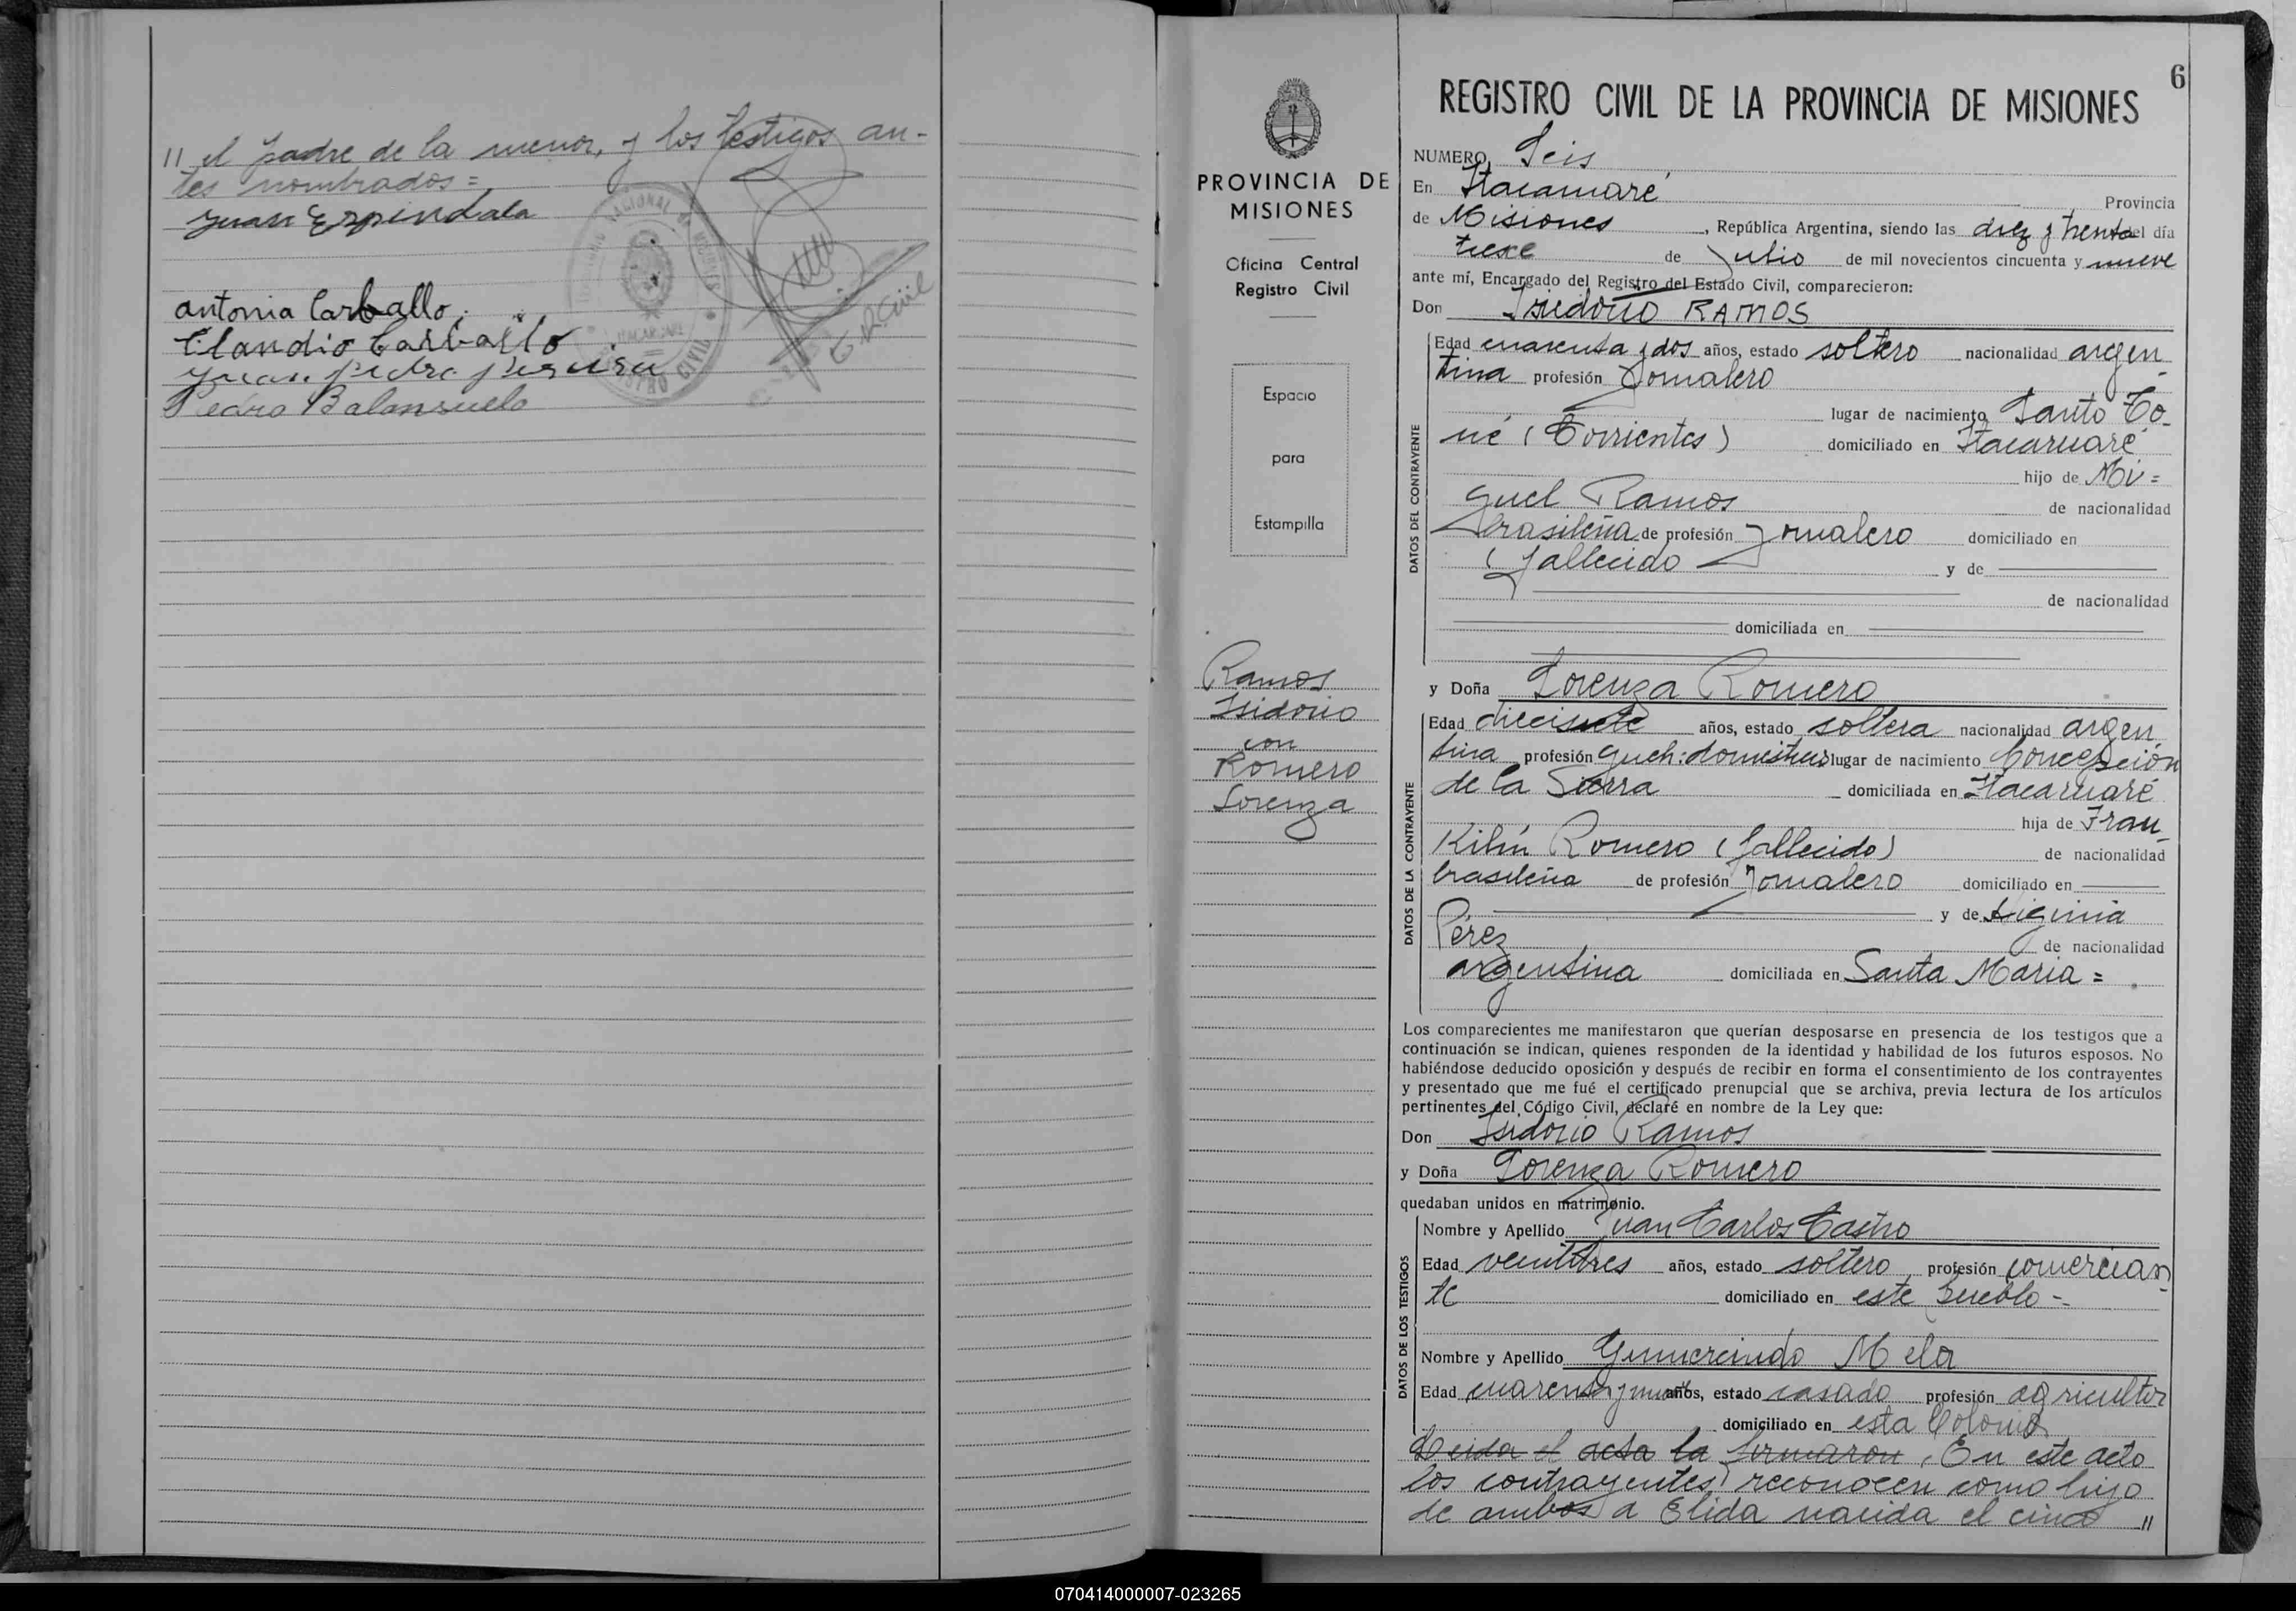 11 el padre de la menor, y los testigos an-
tes nombrados =
Juan Espindola
antonia Carballo
Claudio Carballo
Juan Pedro
Pedro Balansuelo
REGISTRO CIVIL
E. R. Civil
PROVINCIA DE
MISIONES
Oficina Central
Registro Civil
Espacio
para
Estampilla
Ramos
Isidorio
con
Romero
Lorenza
6
REGISTRO CIVIL DE LA PROVINCIA DE MISIONES
NUMERO Seis
En Itacaruaré Provincia
de Misiones, República Argentina, siendo las diez y treinta del día
trece de Julio de mil novecientos cincuenta y nueve
ante mí, Encargado del Registro del Estado Civil, comparecieron:
Don Isidorio RAMOS
DATOS DEL CONTRAYENTE
Edad cuarenta y dos años, estado soltero nacionalidad argen-
tina profesión Jornalero
lugar de nacimiento Santo To-
mé (Corrientes) domiciliado en Itacaruaré
hijo de Mi=
guel Ramos de nacionalidad
brasileña de profesión Jornalero domiciliado en
(fallecido y de
de nacionalidad
domiciliada en
y Doña Lorenza Romero
DATOS DE LA CONTRAYENTE
Edad diecisiete años, estado soltera nacionalidad argen
tina profesión queh: domésticos lugar de nacimiento Concepción
de la Sierra domiciliada en Itacaruaré
hija de Fran-
Kilín Romero (fallecido) de nacionalidad
brasileña de profesión Jornalero domiciliado en
y de Liginia
Pérez de nacionalidad
argentina domiciliada en Santa Maria =
Los comparecientes me manifestaron que querían desposarse en presencia de los testigos que a
continuación se indican, quienes responden de la identidad y habilidad de los futuros esposos. No
habiéndose deducido oposición y después de recibir en forma el consentimiento de los contrayentes
y presentado que me fué el certificado prenupcial que se archiva, previa lectura de los artículos
pertinentes del Código Civil, declaré en nombre de la Ley que:
Don Isidorio Ramos
y Doña Lorenza Romero
quedaban unidos en matrimonio.
DATOS DE LOS TESTIGOS
Nombre y Apellido Juan Carlos Castro
Edad veintitres años, estado soltero profesión comercian-
te domiciliado en este pueblo -
Nombre y Apellido Gumercindo Mela
Edad cuarenta y nueve años, estado casado profesión agricultor
domiciliado en esta Colonia
Leida el acta la firmaron, En este acto
los contrayentes reconocen como hija
de ambos a Elida nacida el cinco 11
070414000007-023265